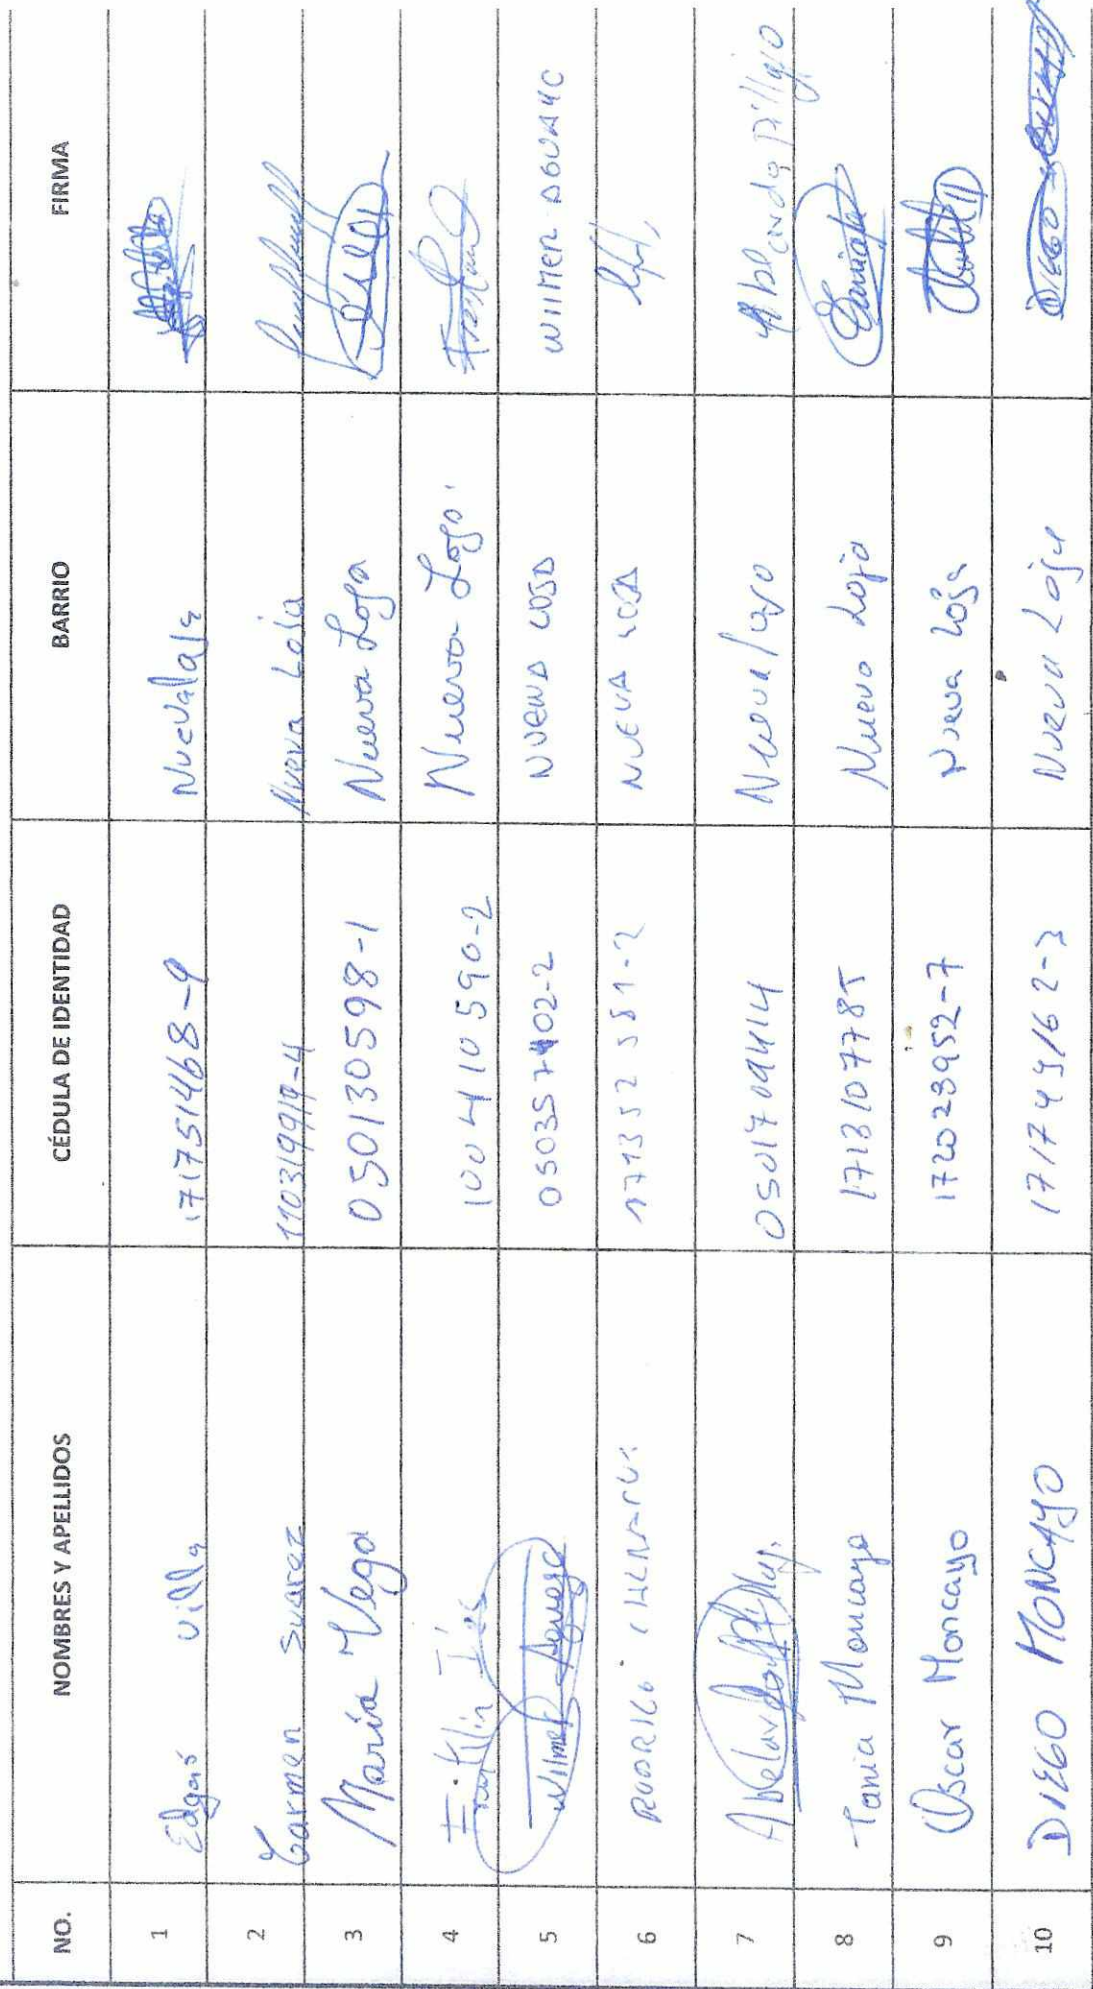 NO. NOMBRES Y APELLIDOS CÉDULA DE IDENTIDAD BARRIO FIRMA
1 Edgar Villa 171751468-9 Nueva Loja
2 Carmen Suarez 110319919-4 Nueva Loja
3 Maria Vega 050130598-1 Nueva Loja
4 100410590-2 Nueva Loja.
5 Wilmer 050357402-2 NUEVA LOJA WILMER
6 RODRIGO 171352581-2 NUEVA LOJA
7 Abelardo 0501709414 Abelardo Pillajo
8 Tania Moncayo 1718107785 Nueva Loja
9 Oscar Moncayo 172023952-7 Nueva Loja
10 DIEGO MONCAYO 171749162-3 Nueva Loja DIEGO